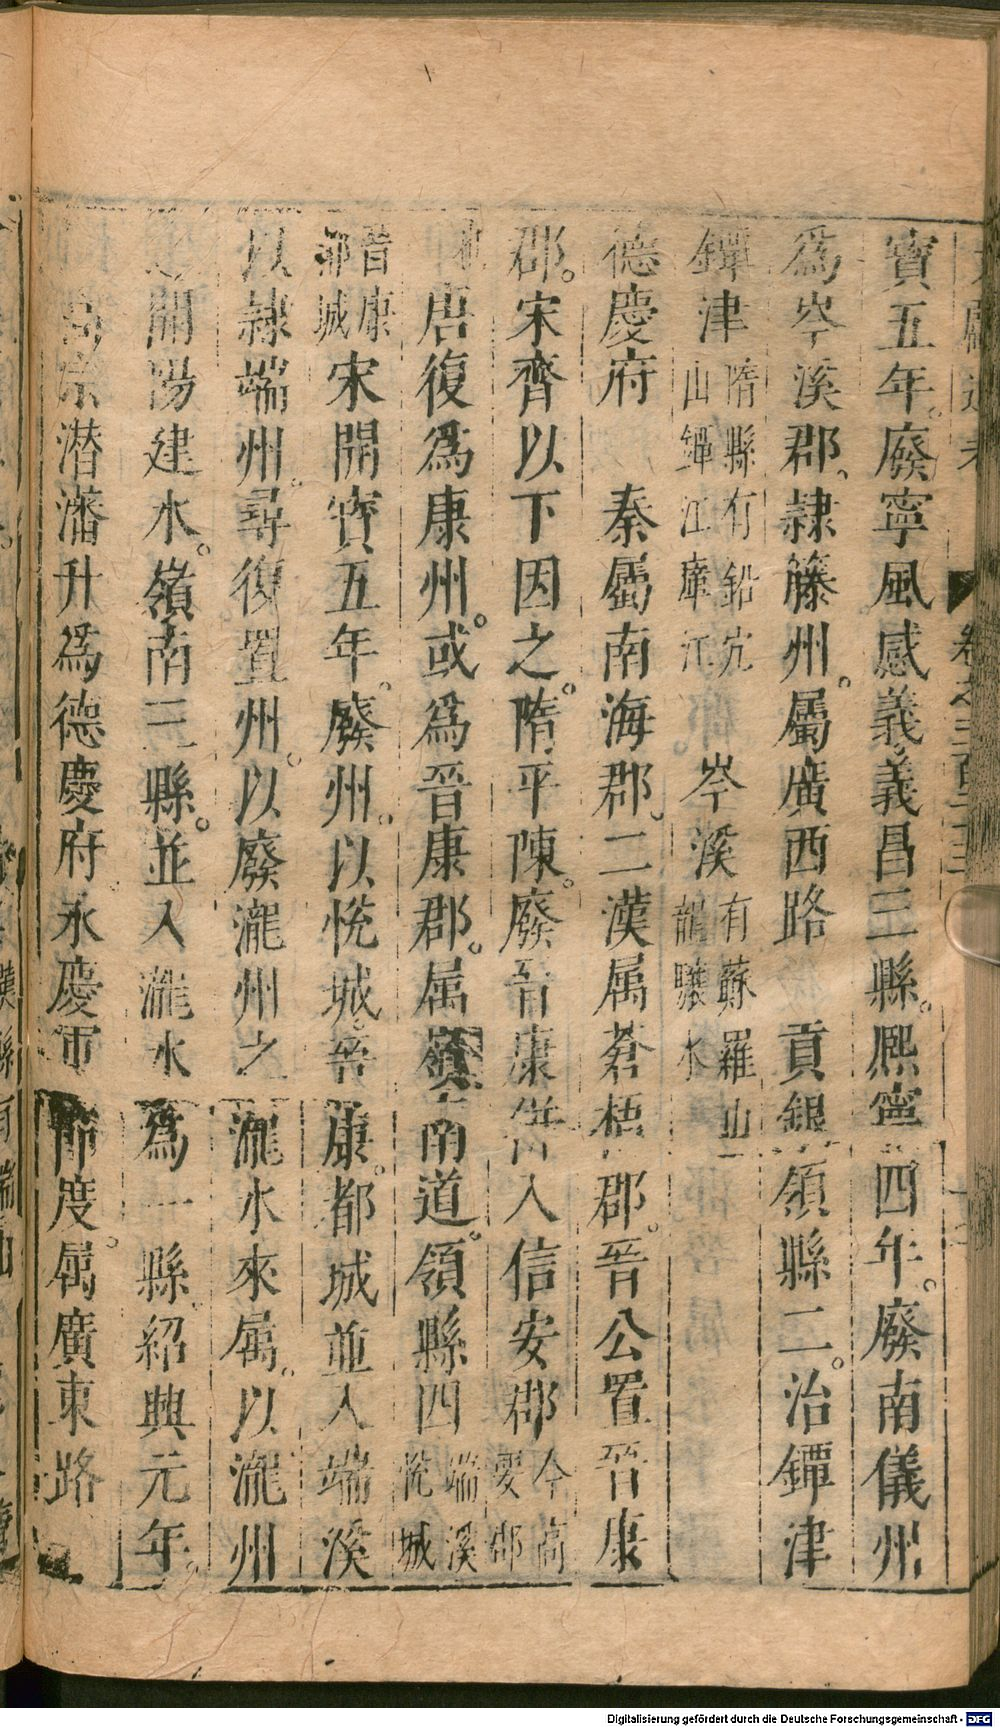 寶五年。廢寧風感義義昌三縣。熈寧四年。廢南儀州
爲岑溪郡。隷籐州。屬廣西路 貢銀領縣二。治鐔津
鐔津 隋縣有鉛穴山鐔江廔江 岑溪 有蘇羅山龍驤水
德慶府 秦屬南海郡。二漢属蒼梧郡。晉公置晉康
郡。宋齊以下因之。隋平陳。廢晉康併入信安郡 今高要郡
地 唐復爲康州。或爲晉康郡。属嶺南道。領縣四 端溪恱城
晉康都城 宋開寶五年。廢州。以恱城晉康。都城並入端溪
以隷端州。尋復置州。以廢瀧州之瀧水來属。以瀧州
之開陽建水。嶺南三縣。並入瀧水爲一縣。紹興元年。
高宗潜藩升爲德慶府永慶軍節度。属廣東路
卷之三百二十三
Digitalisierung gefördert durch die Deutsche Forschungsgemeinschaft - DFG